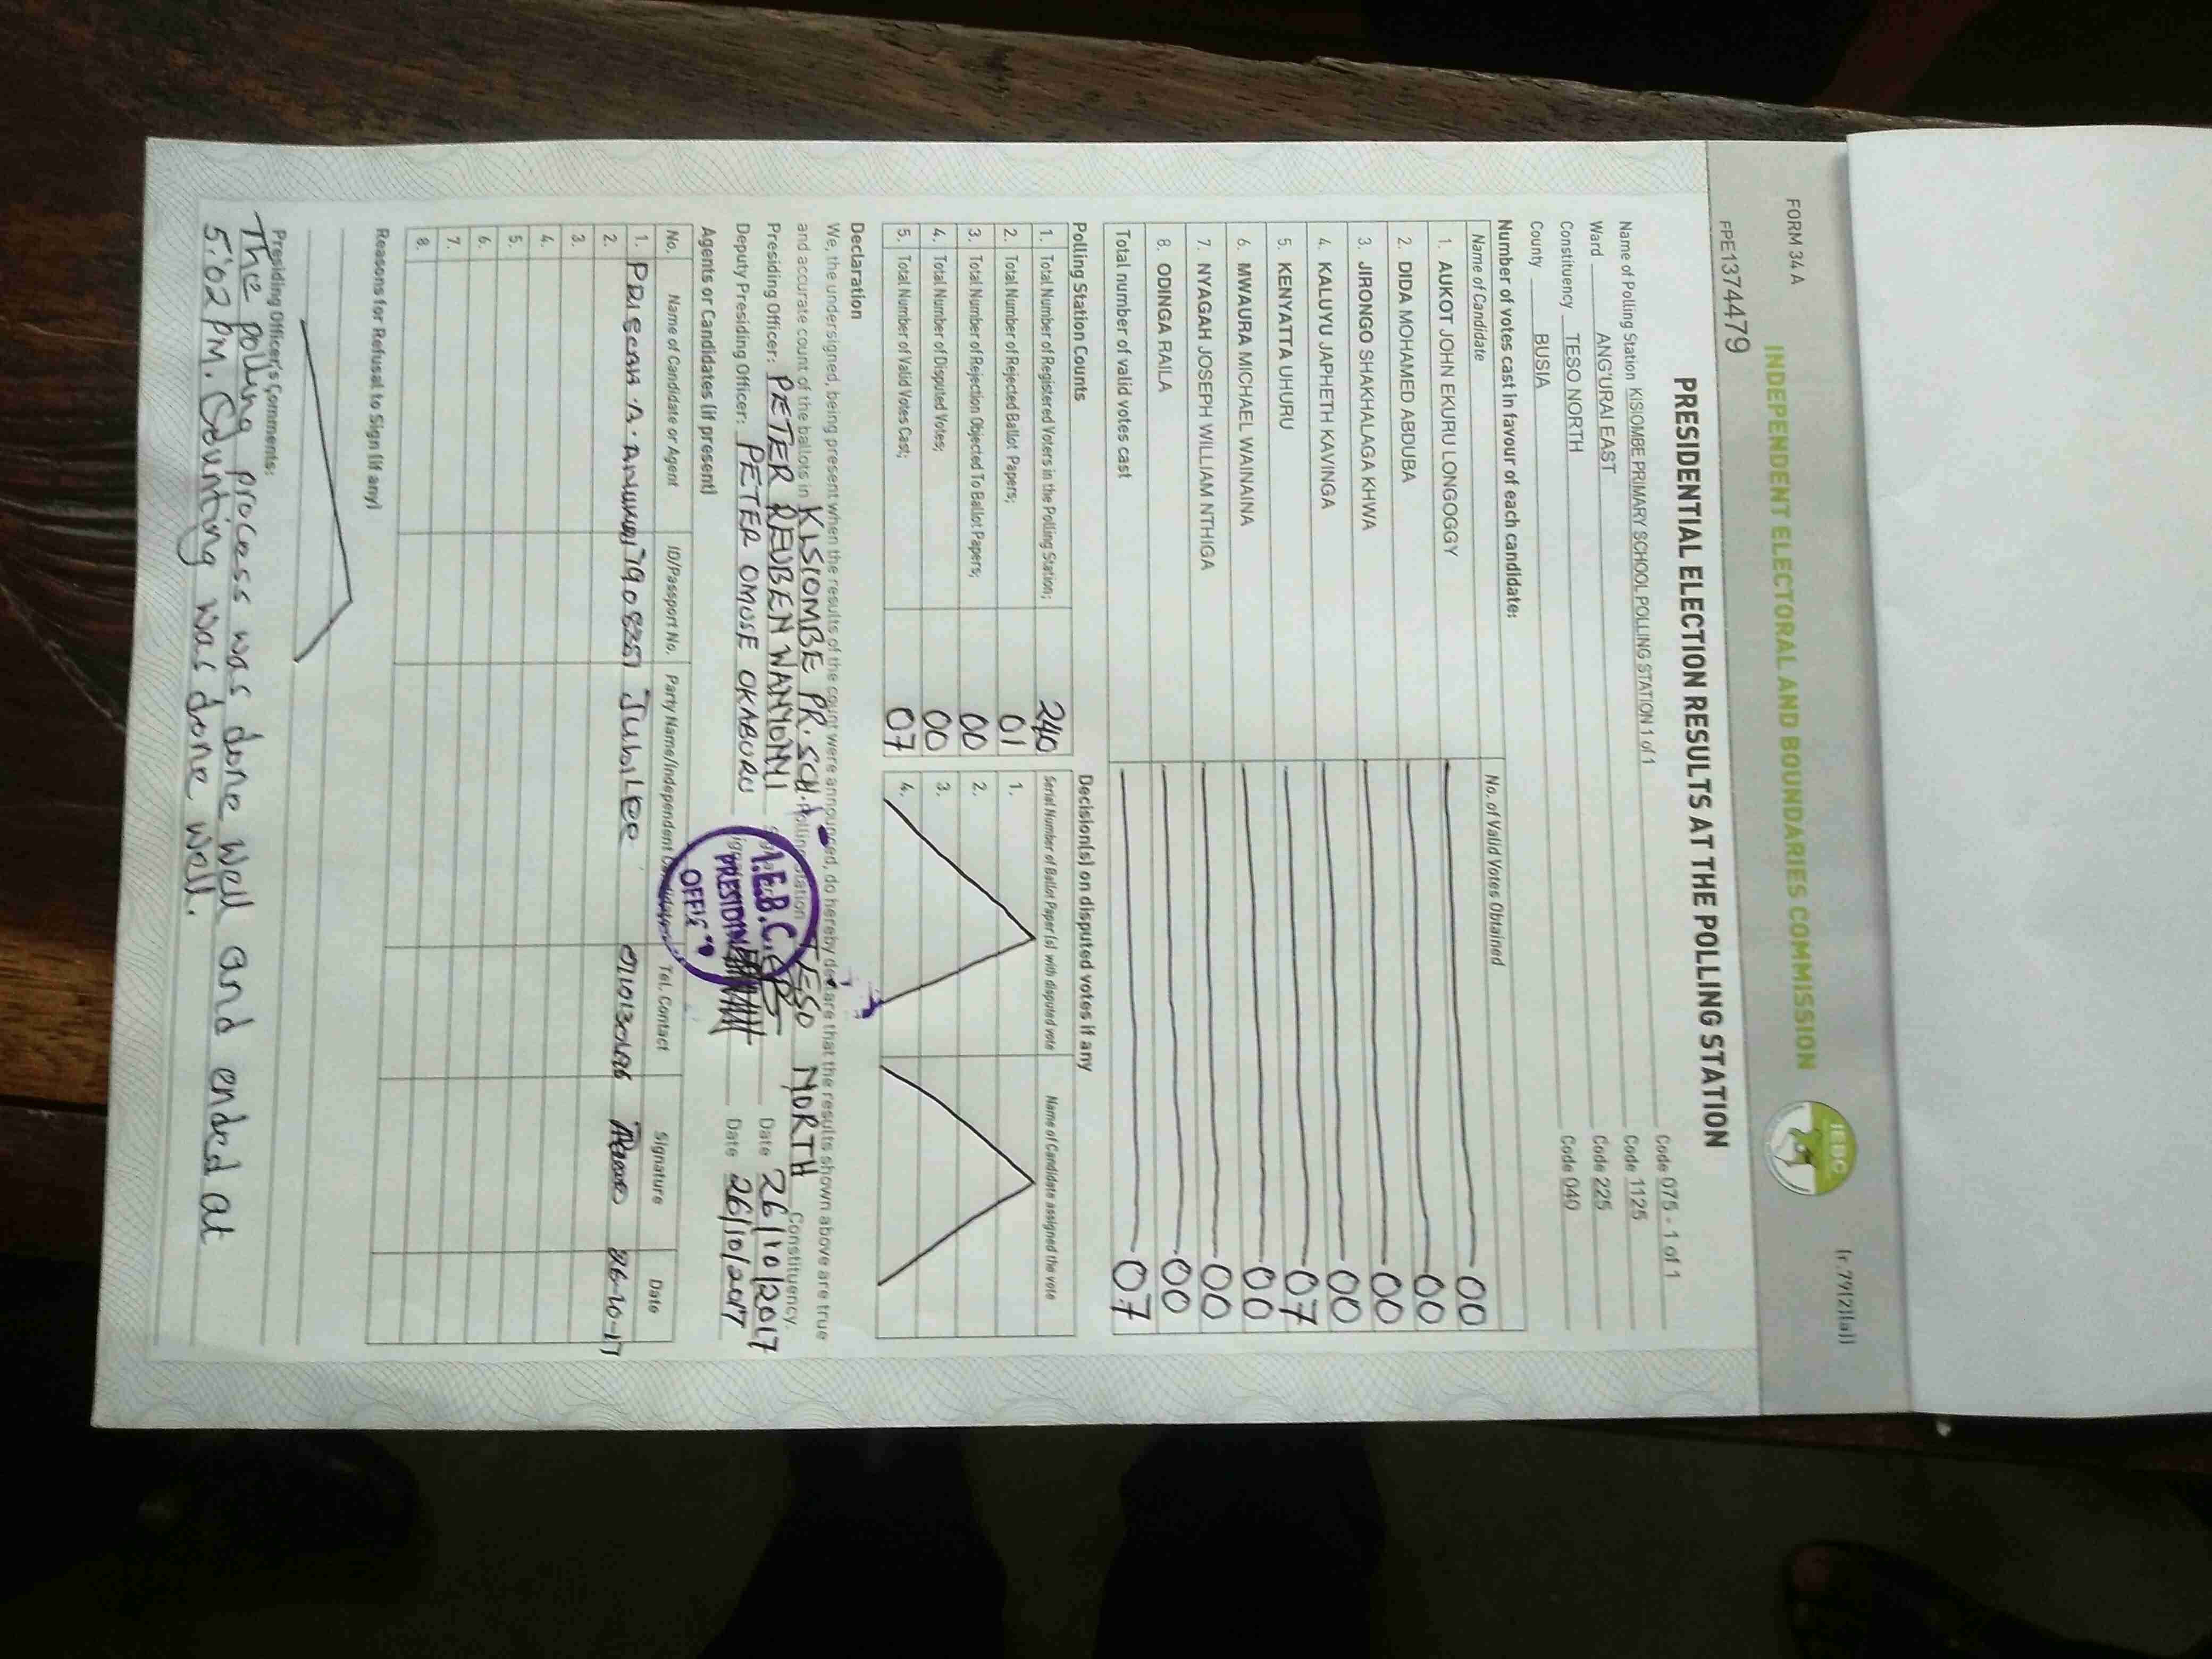 FORM 34 A
(r.79(2)(a))
INDEPENDENT ELECTORAL AND BOUNDARIES COMMISSION
IEBC
FPE1374479
PRESIDENTIAL ELECTION RESULTS AT THE POLLING STATION
Name of Polling Station KISIOMBE PRIMARY SCHOOL POLLING STATION 1 of 1 Code 075 - 1 of 1
Ward ANG'URAI EAST Code 1125
Constituency TESO NORTH Code 225
County BUSIA Code 040
Number of votes cast in favour of each candidate:
Name of Candidate No. of Valid Votes Obtained
1. AUKOT JOHN EKURU LONGOGGY 00
2. DIDA MOHAMED ABDUBA 00
3. JIRONGO SHAKHALAGA KHWA 00
4. KALUYU JAPHETH KAVINGA 00
5. KENYATTA UHURU 07
6. MWAURA MICHAEL WAINAINA 00
7. NYAGAH JOSEPH WILLIAM NTHIGA 00
8. ODINGA RAILA 00
Total number of valid votes cast 07
Polling Station Counts Decision(s) on disputed votes if any
Serial Number of Ballot Paper(s) with disputed vote Name of Candidate assigned the vote
1. Total Number of Registered Voters in the Polling Station; 240 1.
2. Total Number of Rejected Ballot Papers; 01 2.
3. Total Number of Rejection Objected To Ballot Papers; 00 3.
4. Total Number of Disputed Votes; 00 4.
5. Total Number of Valid Votes Cast; 07
Declaration
We, the undersigned, being present when the results of the count were announced, do hereby declare that the results shown above are true
and accurate count of the ballots in KISIOMBE PR. SCH. Polling Station TESO NORTH Constituency.
Presiding Officer: PETER REUBEN WANYONYI Date 26/10/2017
Deputy Presiding Officer: PETER OMUSE OKABURU Date 26/10/2017
I.E.B.C.
PRESIDING
OFFICER
Agents or Candidates (if present)
No. Name of Candidate or Agent ID/Passport No. Party Name/Independent Candidate Tel. Contact Signature Date
1. A. Jubilee 26-10-17
2.
3.
4.
5.
6.
7.
8.
Reasons for Refusal to Sign (if any)
Presiding Officer's Comments:
The polling process was done well and ended at
5:02 PM. Counting was done well.